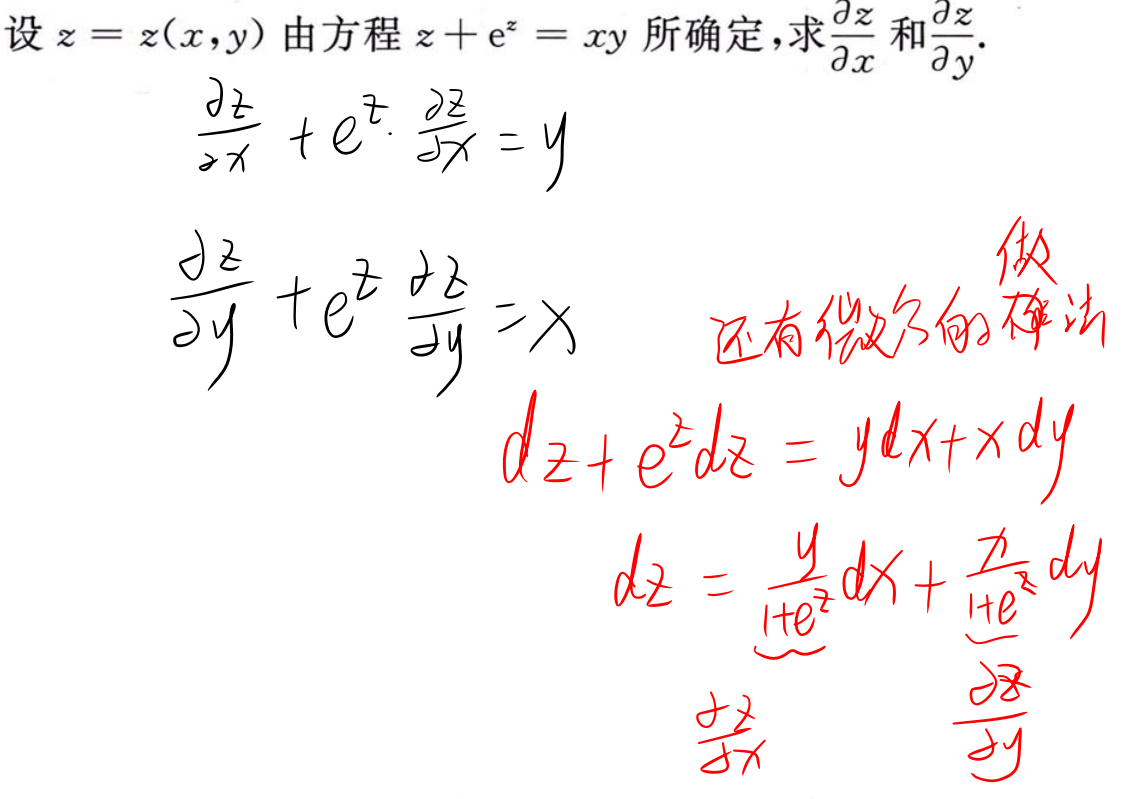 设 z = z(x,y) 由方程 z + e^z = xy 所确定,求 ∂z/∂x 和 ∂z/∂y.
∂z/∂x + e^z · ∂z/∂x = y
∂z/∂y + e^z ∂z/∂y = x
做
还有微分的 法
dz + e^z dz = ydx + xdy
dz = y/(1+e^z) dx + x/(1+e^z) dy
∂z/∂x ∂z/∂y